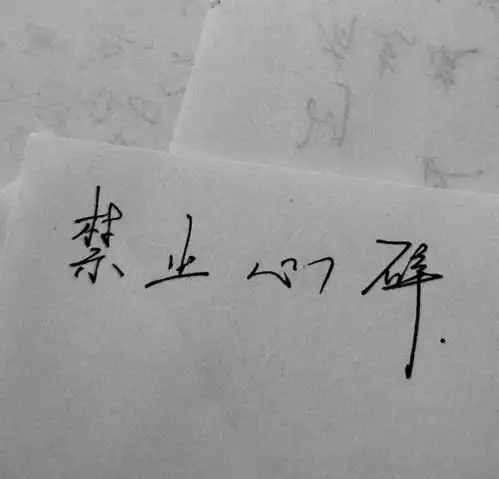 禁止心碎.